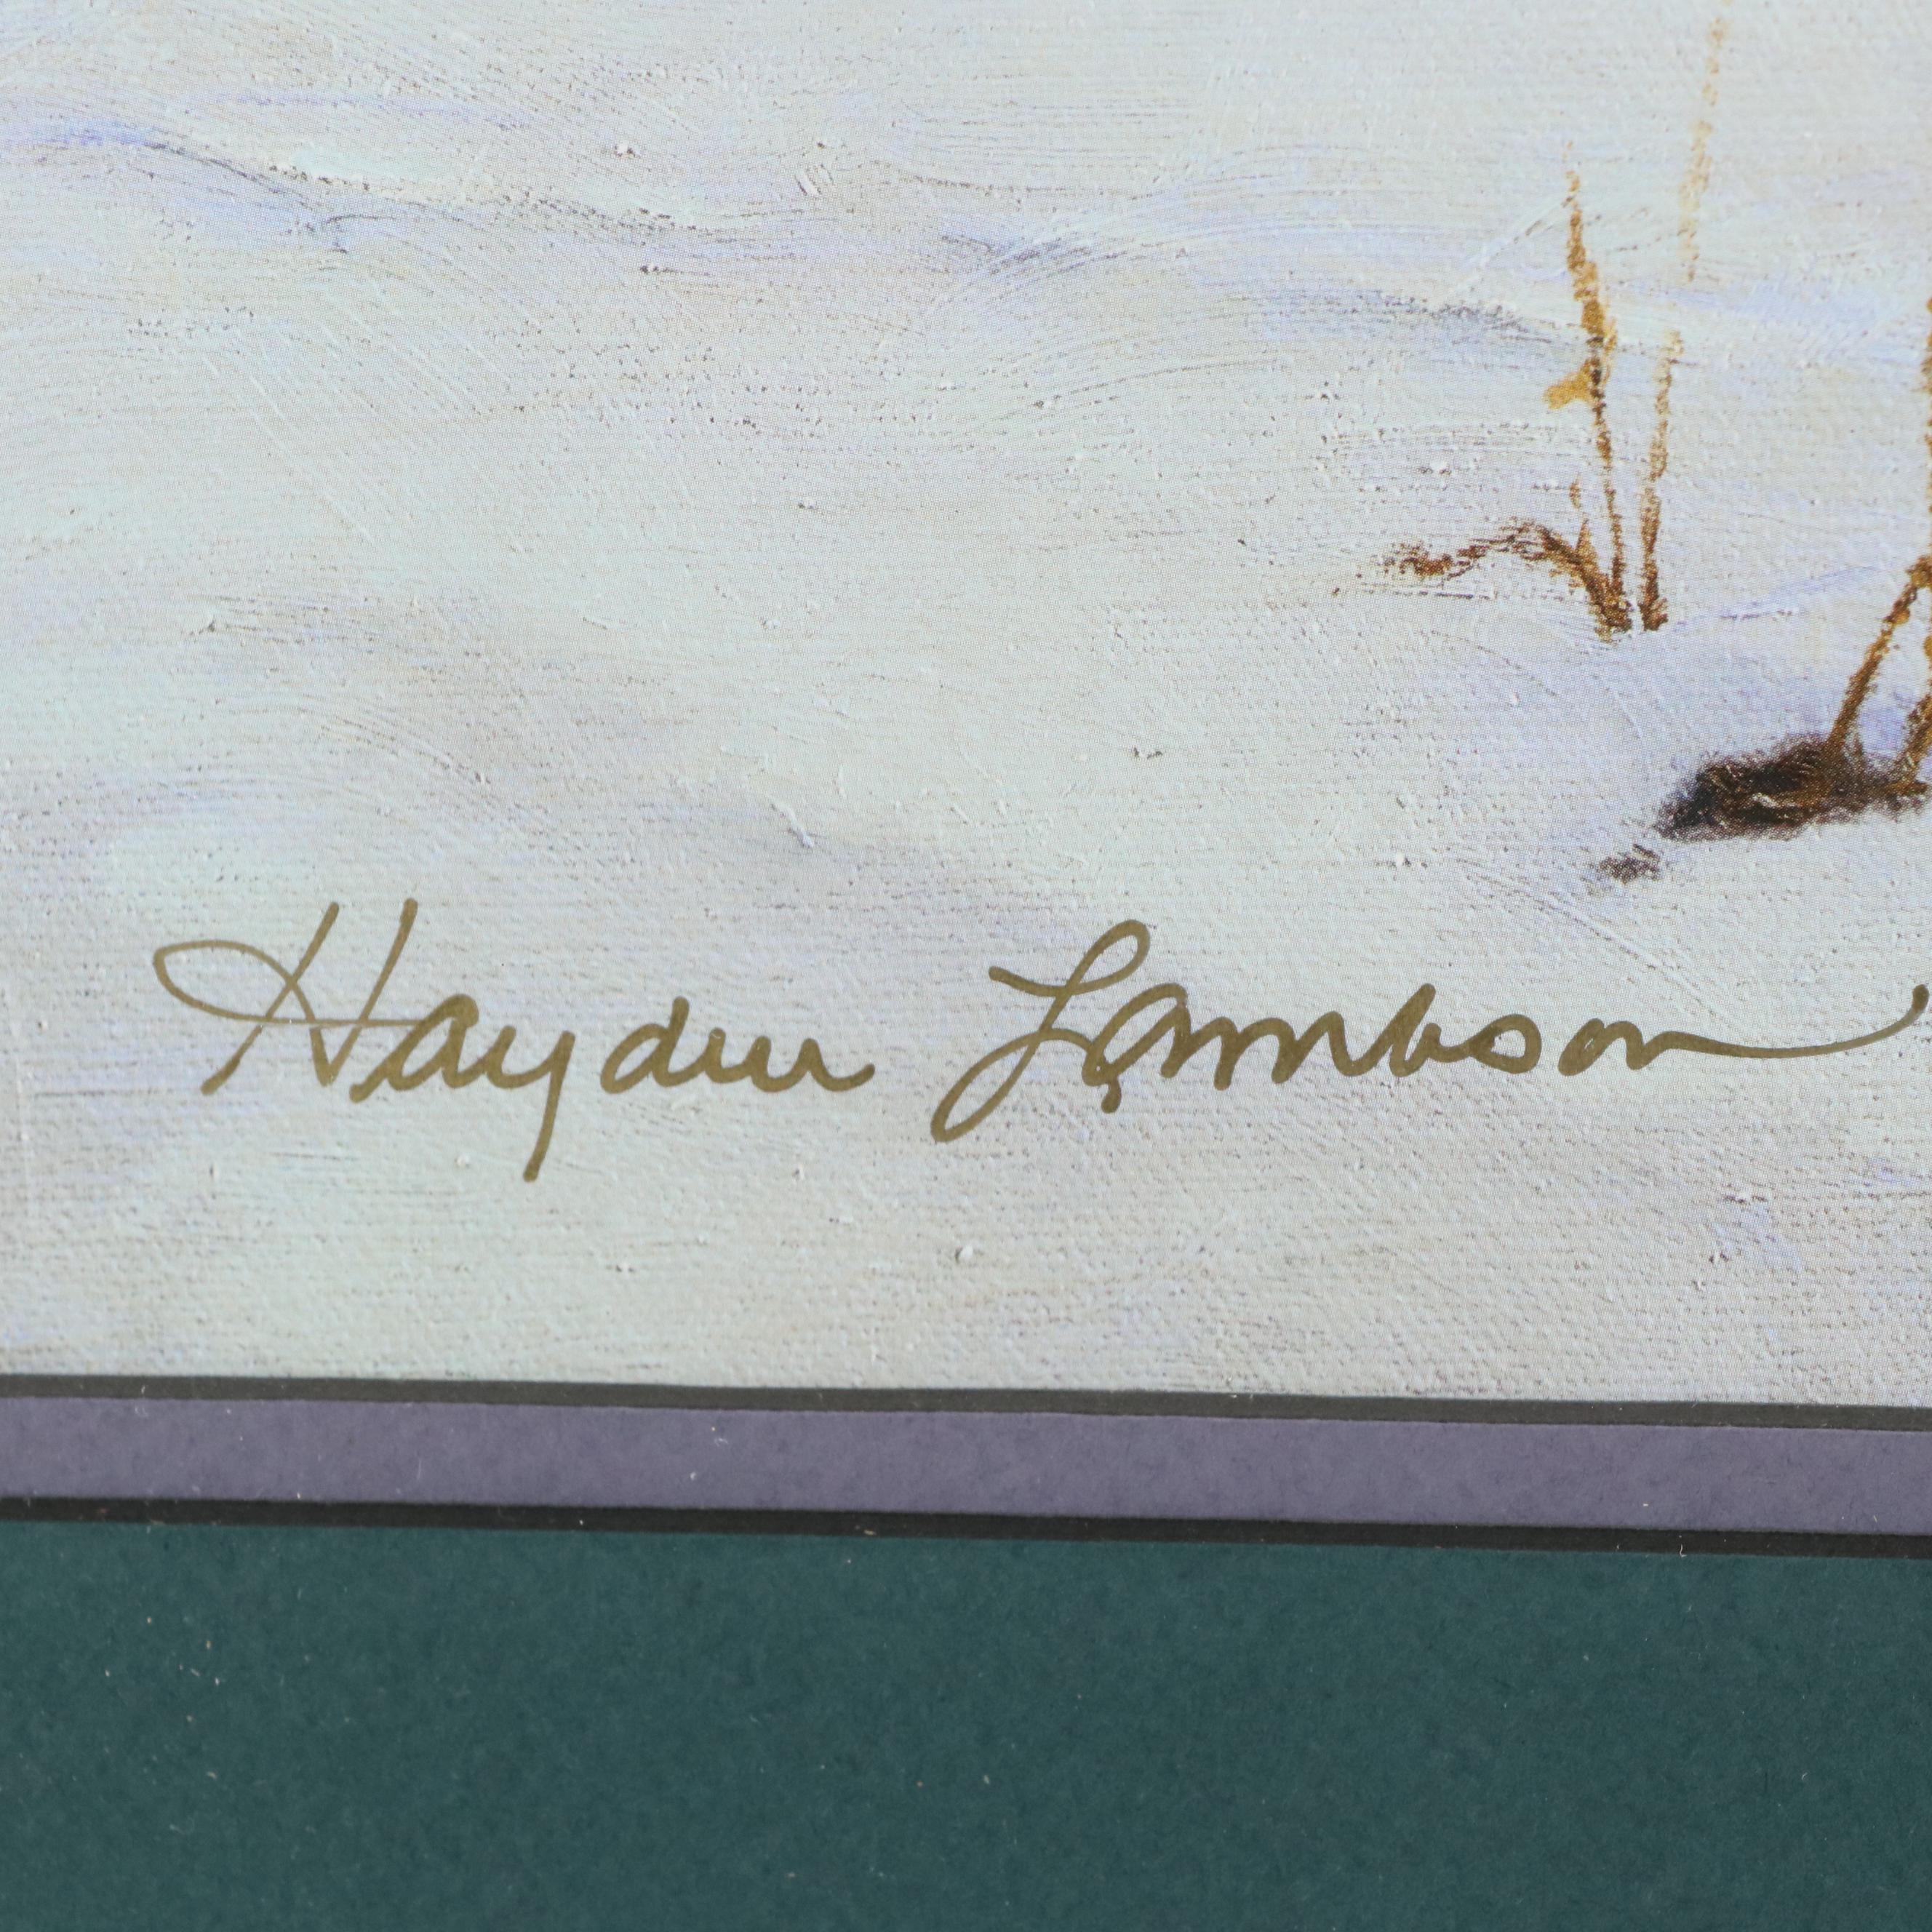 Hayden Lambson